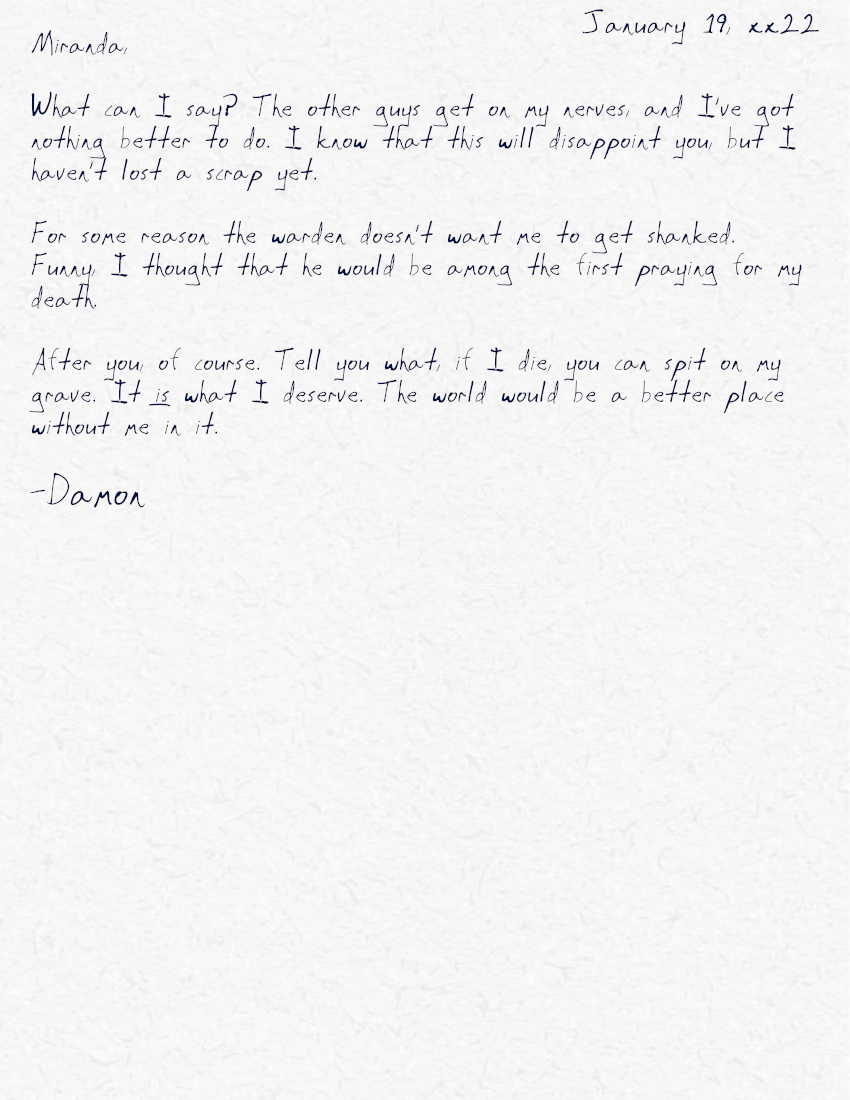 January 19, xx22
Miranda,
What can I say? The other guys get on my nerves, and I've got
nothing better to do. I know that this will disappoint you, but I
haven't lost a scrap yet.
For some reason the warden doesn't want me to get shanked.
Funny, I thought that he would be among the first praying for my
death.
After you, of course. Tell you what, if I die, you can spit on my
grave. It is what I deserve. The world would be a better place
without me in it.
-Damon